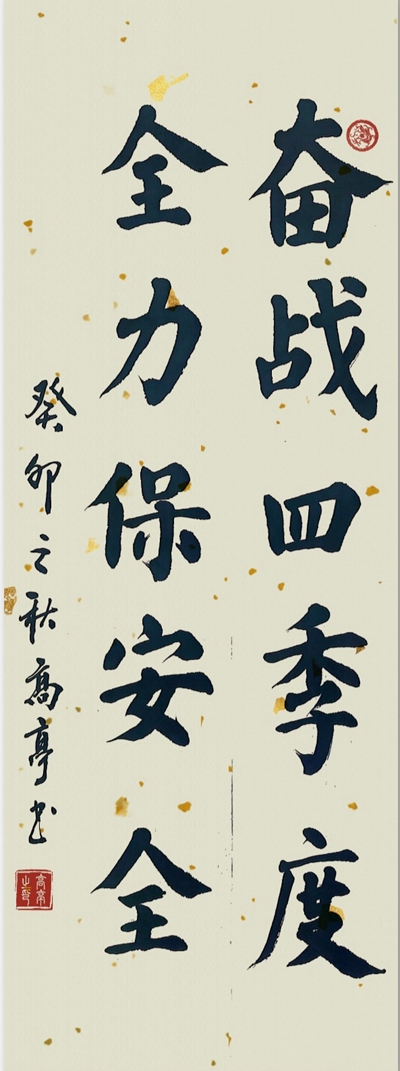 奋战四季度
全力保安全
癸卯之秋高亭书